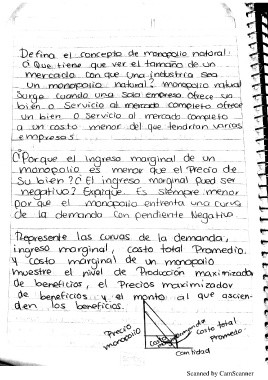 Defina el concepto de monopolio natural.
¿Que tiene que ver el tamaño de un
mercado con que una industria sea
un monopolio natural? monopolio natural
Surge cuando una sola empresa ofrece un
bien o servicio al mercado completo ofrece
un bien o servicio al mercado completo
a un costo menor del que tendrian varias
empresas.
¿Porque el ingreso marginal de un
monopolista es menor que el Precio de
Su bien? ¿El ingreso marginal pued ser
negativo? Explique. Es siempre menor
por que el monopolio enfrenta una curva
de la demanda con pendiente Negativa.
Represente las curvas de la demanda,
ingreso marginal, costo total Promedio.
y costo marginal de un monopolio
muestre el nivel de Producción maximizada
de beneficios, el Precios maximizador
de beneficios y el monto al que ascien-
den los beneficios.
Precio
monopolio
demanda
costo total
Promedio
Cantidad
Scanned by CamScanner